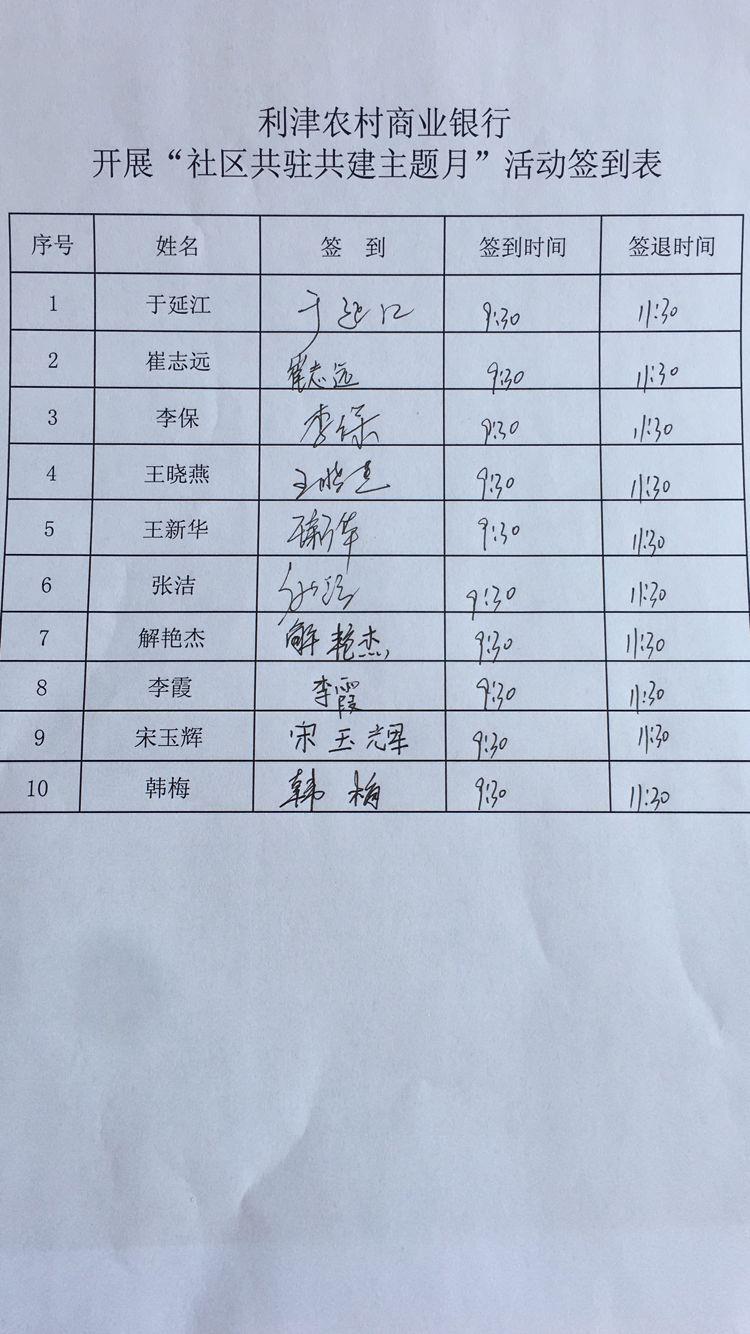 利津农村商业银行
开展“社区共驻共建主题月”活动签到表
序号 姓名 签 到 签到时间 签退时间
1 于延江 于延江 9:30 11:30
2 崔志远 崔志远 9:30 11:30
3 李保 李保 9:30 11:30
4 王晓燕 王晓燕 9:30 11:30
5 王新华 王新华 9:30 11:30
6 张洁 张洁 9:30 11:30
7 解艳杰 解艳杰 9:30 11:30
8 李霞 李霞 9:30 11:30
9 宋玉辉 宋玉辉 9:30 11:30
10 韩梅 韩梅 9:30 11:30